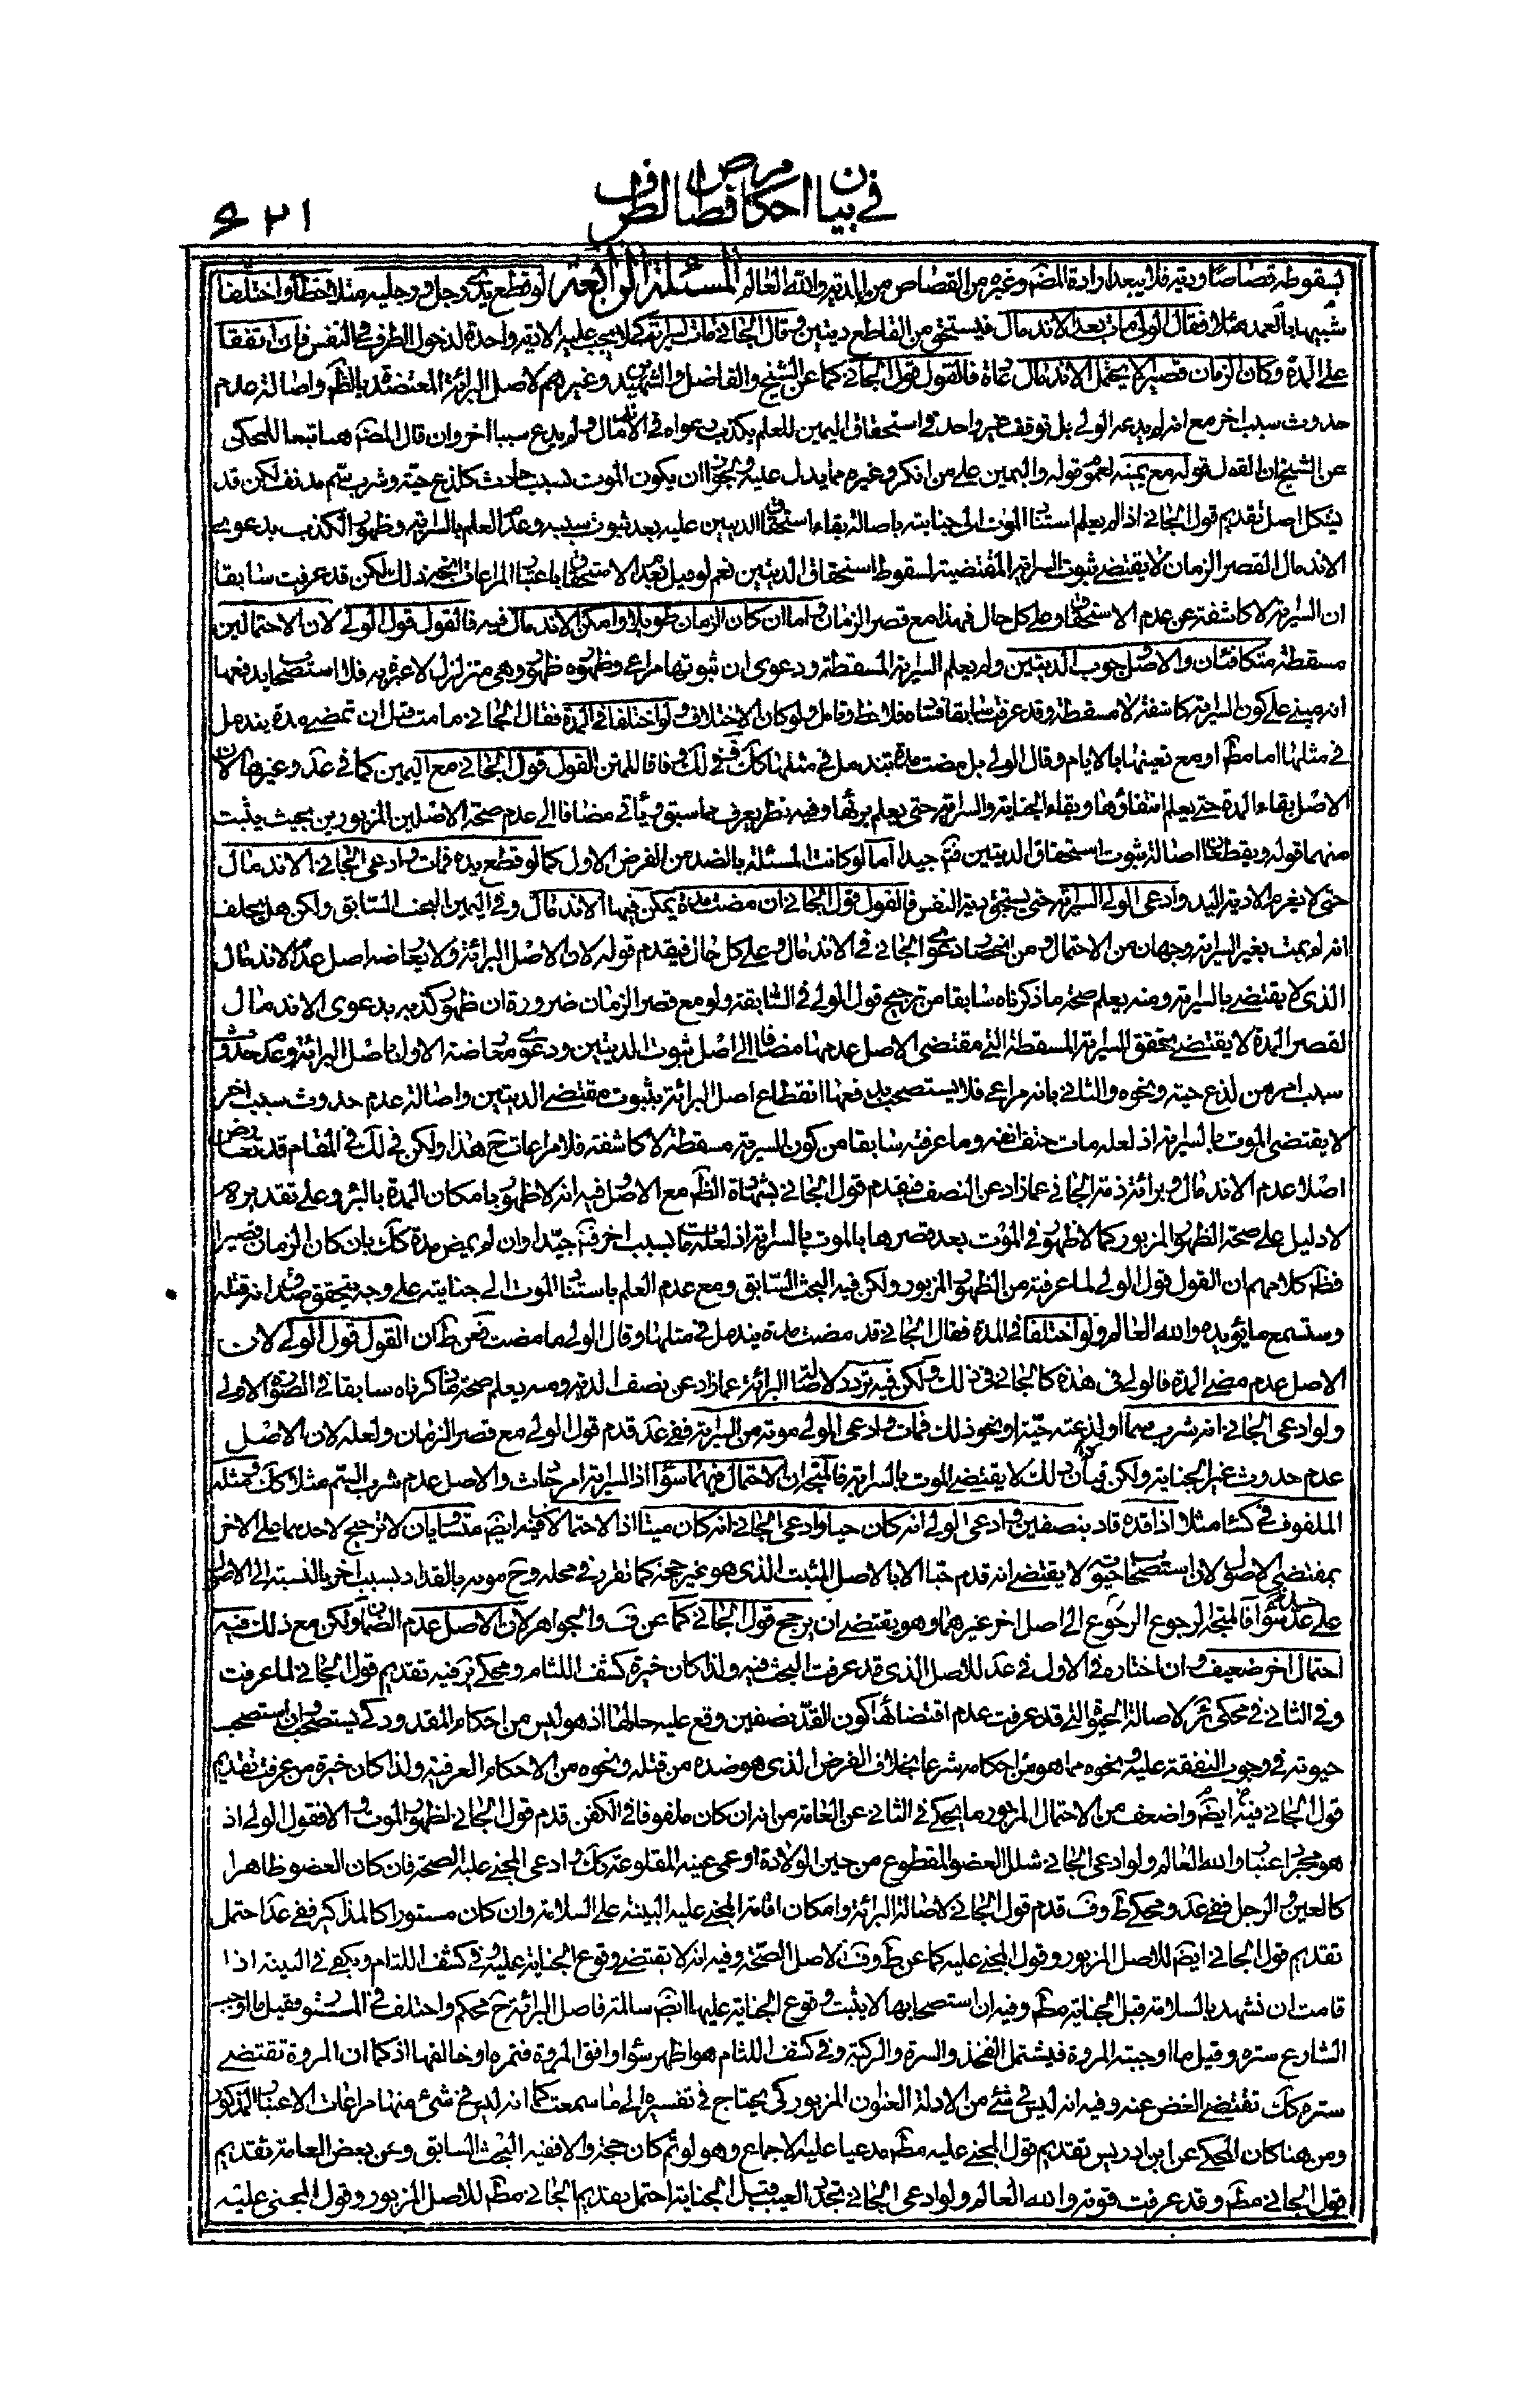 في بيان احكام قصاص الطرف
٦٢١
لسقوطه قصاصا ودية فلا يبعد ارادة المصَ وغيره من القصاص من الدية والله العالم المسئلة الرابعة لو قطع يدى رجل ورجليه مثلا خطأ واختلفا
شبيها بالعمد مثلا فقال الولى مات بعد الاندمال فيستحق من القاطع ديتين وقال الجانى مات سراية كيلا يجب عليه الا دية واحدة لدخول الطرف في النفس فان اتفقا
على المدة وكان الزمان قصيرا لا يحتمل الاندمال عادة فالقول قول الجانى كما عن الشيخ والفاضل والشهيد وغيرهم لاصل البرائة المعتضد بالظَم واصالة عدم
حدوث سبب اخر مع انه لم يدعه الولى بل توقف غير واحد في استحقاق اليمين للعلم بكذب دعواه في الاندمال ولم يدع سببا اخر وان قال المصَ هنا تبعا للمحكى
عن الشيخ ان القول قوله مع يمينه لعموم قوله واليمين على من انكر وغيره مما يدل عليه ولجواز ان يكون الموت بسبب حادث كلذع حية وشرب سم مدنف لكن قد
يشكل اصل تقديم قول الجانى اذا لم يعلم استناد الموت الى جنايته باصالة بقاء استحقاق الديتين عليه بعد ثبوت سببه وعدم العلم بالسراية وظهور الكذب بدعوى
الاندمال لقصر الزمان لا يقتضى ثبوت السراية المقتضية لسقوط استحقاق الديتين نعم لو قيل بعدم الاستحقاق باعتبار المراعات اتجه ذلك لكن قد عرفت سابقا
ان السراية لا كاشفة عن عدم الاستحقاق وعلى كل حال فهذا مع قصر الزمان واما ان كان الزمان طويلا وامكن الاندمال فيه فالقول قول الولى لان الاحتمالين
مسقطة متكافئان والاصل وجوب الديتين ولم يعلم السراية المسقطة ودعوى ان ثبوتها مراعى وظهوره ظهور وهمى متزلزل لا عبرة به فلا استصحاب يدفعها
انه مبنى على كون السراية كاشفة لا مسقطة وقد عرفت سابقا فساده فلاحظ وتامل ولو كان الاختلاف ولو اختلفا في المدة فقال الجانى ما مت قبل ان تمضى مدة يندمل
في مثلها اما مطَم او مع تعيينها بالايام وقال الولى بل مضت مدة تندمل في مثلها كان في ذلك وفاقا للمتن القول قول الجانى مع اليمين كما في عدَ وغيرها لان
الاصل بقاء المدة حتى يعلم انتفاؤها وبقاء الجناية والسراية حتى يعلم برئها وفيه نظر يعرف مما سبق ويأتى مضافا الى عدم صحة الاصلين المزبورين بحيث يثبت
منهما قوله ويقطعان اصالة ثبوت استحقاق الديتين فتَم جيدا اما لو كانت المسئلة بالضد من الفرض الاول كما لو قطع يده فمات وادعى الجانى الاندمال
حتى لا يغرم الا دية اليد وادعى الولى السراية حتى يستحق دية النفس فالقول قول الجانى ان مضت مدة يمكن فيها الاندمال وفي اليمين البحث السابق ولكن هل يحلف
انه لم يمت بغير السراية وجهان من الاحتمال ومن انحصار دعوى الجانى في الاندمال وعلى كل حال فيقدم قوله لان الاصل البرائة ولا يعارضه اصل عدم الاندمال
الذى لا يقتضى بالسراية ومنه يعلم صحة ما ذكرناه سابقا من ترجيح قول الولى في السابقة ولو مع قصر الزمان ضرورة ان ظهور كذبه بدعوى الاندمال
لقصر المدة لا يقتضى تحقق للسراية المسقطة التى مقتضى الاصل عدمها مضافا الى اصل ثبوت الديتين ودعوى معارضة الاول باصل البرائة وعدم حدوث
سبب اخر من لذع حية ونحوه والثانى بانه مراعى فلا يستصحب يدفعها انقطاع اصل البرائة بثبوت مقتضى الديتين واصالة عدم حدوث سبب اخر
لا يقتضى الموت بالسراية اذ لعله مات حتف انفه وما عرفته سابقا من كون السراية مسقطة لا كاشفة فلا مراعات حَ هذا ولكن في لك في المقام قد تعارض
اصلا عدم الاندمال وبرائة ذمة الجانى عما زاد عن النصف فيقدم قول الجانى بشهادة الظَم مع الاصل فيه انه لا ظهور بامكان المدة بالبرؤ وعلى تقديره
لا دليل على صحة الظهور المزبور كما لا ظهور في الموت بعد قصرها بالموت بالسراية اذ لعله مات بسبب اخر فتَم جيدا وان لم يمض مدة كك بان كان الزمان قصيرا
فظَم كلامهم ان القول قول الولى لما عرفته من الظهور المزبور ولكن فيه البحث السابق ومع عدم العلم باستناد الموت الى جنايته على وجه يتحقق صدق انه قتله
وستسمع ما يؤيده والله العالم ولو اختلفا في المدة فقال الجانى قد مضت مدة يندمل في مثلها وقال الولى ما مضت فعن طَ ان القول قول الولى لان
الاصل عدم مضى المدة فالولى في هذه كالجانى في ذلك ولكن فيه تردد لاصالة البرائة عما زاد عن نصف الدية ومنه يعلم صحة ما ذكرناه سابقا في الصورة الاولى
ولو ادعى الجانى انه شرب سما او لذعته حية او نحو ذلك فمات وادعى الولى موته من السراية ففى عدَ قدم قول الولى مع قصر الزمان ولعله لان الاصل
عدم حدوث غير الجناية ولكن فيه ان ذلك لا يقتضى الموت بالسراية فالمتجه ان الاحتمال فيهما سواء اذ السراية امر حادث والاصل عدم شرب السم مثلا كك ومثله
الملفوف في كساء مثلا اذا قده قاد بنصفين وادعى الولى انه كان حيا وادعى الجانى انه كان ميتا اذ الاحتمالان فيه ايضَم متساويان لا ترجيح لاحدهما على الاخر
بمقتضى الاصول لان استصحاب حيوته لا يقتضى انه قدم حيا الا بالاصل المثبت الذى هو غير حجة كما تقرر في محله وحَ موته بالقد او بسبب اخر بالنسبة الى الاصل
على حد سواء فالمتجه الرجوع الرجوع الى اصل اخر غيرهما وهو يقتضى ان يرجح قول الجانى كما عن فَ والجواهر لان الاصل عدم الضمان ولكن مع ذلك فيه
احتمال اخر ضعيف وان اختاره في الاول في عدَ للاصل الذى قد عرفت البحث فيه ولذا كان خيرة كشف اللثام ومحكى يَر فيه تقديم قول الجانى لما عرفت
وفي الثانى في محكى ئَر لاصالة الحيوة التى قد عرفت عدم اقتضائها كون القدّ بنصفين وقع عليه حالها اذ هو ليس من احكام المقدود كى يستصحب وان استصحب
حيوته في وجوب النفقة عليه ونحوه مما هو من احكامه شرعا بخلاف الفرض الذى هو ضده من قتله ونحوه من الاحكام العرفية ولذا كان خيرة من عرفت تقديم
قول الجانى فيه ايضَم واضعف من الاحتمال المزبور ما يحكى في الثانى عن العامة من انه ان كان ملفوفا في الكفن قدم قول الجانى لظهور الموت والا فقول الولى اذ
هو مجرد اعتبار والله العالم ولو ادعى الجانى شلل العضو المقطوع من حين الولادة او عمى عينه المقلوعة كك وادعى المجنى عليه الصحة فان كان العضو ظاهرا
كالعين والرجل ففى عدَ ومحكى طَ وفَ قدم قول الجانى لاصالة البرائة وامكان اقامة المجنى عليه البينة على السلامة وان كان مستورا كالمذاكير ففى عدَ احتمل
تقديم قول الجانى ايضَم للاصل المزبور وقول المجنى عليه كما عن طَ وفَ لاصل الصحة وفيه انه لا يقتضى وقوع الجناية عليه وفي كشف اللثام ويكفى في البينة اذا
قامت ان تشهد بالسلامة قبل الجناية مطَم وفيه ان استصحابها لا يثبت وقوع الجناية عليها ايضَم سالمة فاصل البرائة حَ محكم واختلف في المستور فقيل ما اوجب
الشارع ستره وقيل ما اوجبته المروة فيشتمل الفخذ والسرة والركبة وفي كشف اللثام هو اظهر سواء وافق المروة فتمره او خالفها اذ كما ان المروة تقتضى
ستره كك تقتضى الغض عنه وفيه انه ليس في شئ من الادلة العنوان المزبور كى يحتاج في تفسيره الى ما سمعت كما انه ليس في شئ منها مراعات الاعتبار المذكور
ومن هنا كان المحكى عن ابن ادريس تقديم قول المجنى عليه مطَم مدعيا عليه الاجماع وهو لو تم كان حجة والا ففيه البحث السابق وعن بعض العامة تقديم
قول الجانى مطَم وقد عرفت قوته والله العالم ولو ادعى الجانى تجدد العيب قبل الجناية احتمل تقديم الجانى مطَم للاصل المزبور وقول المجنى عليه